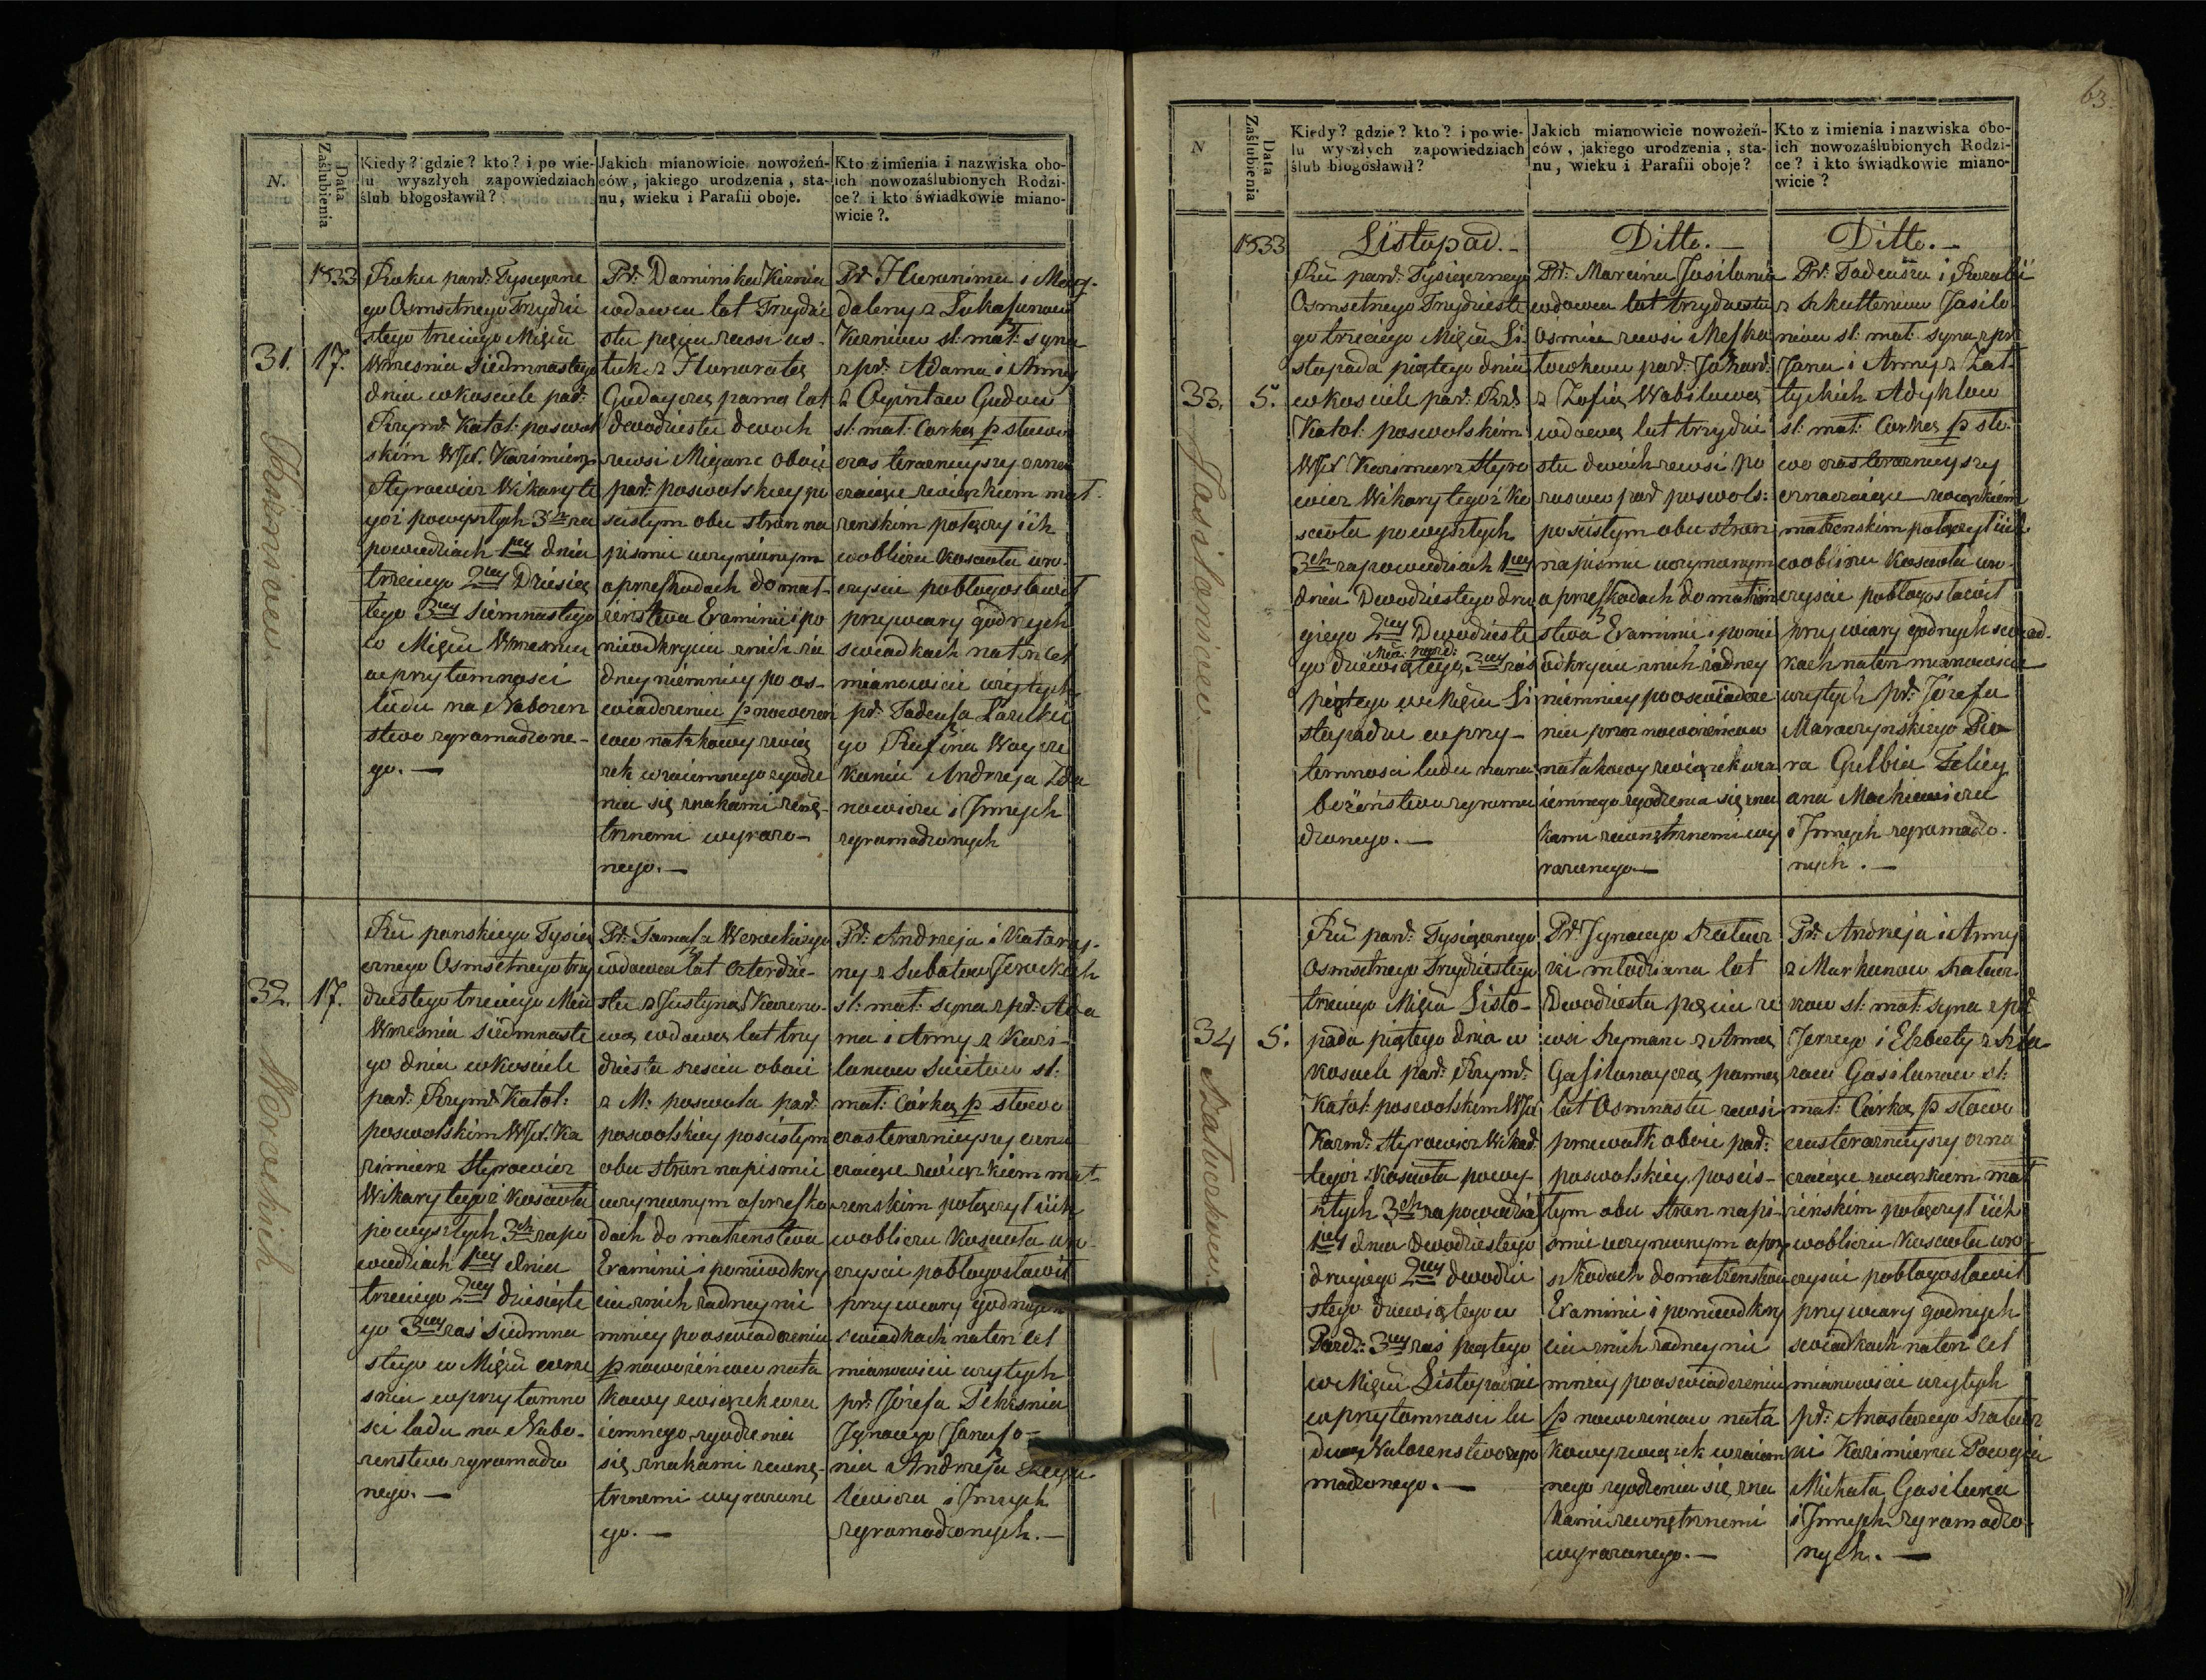 N.
Data Zaślubienia
Kiedy? gdzie? kto? i po wie-
lu wyszłych zapowiedziach
ślub błogosławił?
Jakich mianowicie nowożeń-
ców, jakiego urodzenia, sta-
nu, wieku i Parafii oboje.
Kto z imienia i nazwiska obo-
ich nowozaślubionych Rodzi-
ce? i kto świadkowie miano-
wicie?.
1833
31.
17.
Roku pańd: Tysiączne
go Osmsetnego Trzydzie
stego trzeciego Mięca
Wrzesnia Siedmnastego
dnia w kosciele par:
Rzymd: Katol: poswol
skim WJX. Kazimierz
Styrowicz Wikary te
goż powyszłych 3ch za
powiedziach 1wej dnia
trzeciego 2iey Dziesią
tego 3iey Siemnastego
w Mięcu Wrzesniu
w przytomnosci
ludu na Nabożen
stwo zgromadzone-
go. —
Pd: Dominika Kiernia
wdowca lat Trzydzie
stu pięciu zewsi us-
tuk z Honoratą
Gudayczą panną lat
dwodziestu dwoch
zewsi Miciane oboie
par: poswolskiey po
scisłym obu stron na
pismie uczynionym
o przeszkodach do mał-
żeństwa Examinie i po
nieodkryciu znich ża
dney niemniey po os-
wiadczeniu p nowożeń
cow natakowy zwią
zek wzaiemnego zgodze
nia się znakami zewnę-
trznemi wyrażo-
nego. —
Pd: Hieronima i Mag-
daleny z Łukaszunow
Kierniow sł: mał: syna
z pd: Adama i Anny
z Ogintow Gudow
sł: mał: Corką p słowa
czas teraznieyszy ozna
czaiące związkiem mał-
żenskim połączył ich
wobliczu koscioła uro-
czyscie pobłogosławił
przy wiary godnych
swiadkach naten cel
mianowicie wziętych
pd: Tadeusza Łazuckie
go Rufina Waycze
kania Andrzeja Zda
nowicza i Jnnych
zgromadzonych
32.
17.
Ru panskiego Tysią
cznego Osmsetnego trzy
dziestego trzeciego Mcu
Wrzesnia siedmnaste
go dnia w kosciele
par: Rzymd: Katol:
poswolskim WJX. Ka
zimierz Styrowicz
Wikary tegoż koscioła
powyszłych 3ch zapo
wiedziach 1wej dnia
trzeciego 2iey dziesiąte
go 3iey zaś siedmna
stego w Mięcu wrze
sniu w przytomno
sci ludu na Nabo-
żenstwo zgromadzo
nego. —
Pd: Tomasza Worockiego
wdowca lat czterdzie-
stu z Justyną Kareno-
wą wdową lat trzy
dziestu szesciu oboie
z M: poswola par:
poswolskiey poscisłym
obu stron napismie
uczynionym o przeszko
dach do małżenstwa
Examinie i ponieodkry
ciu znich żadney nie
mniey po oswiadczeniu
p nowożeńcow nata
kowy związek wza
iemnego zgodzenia
się znakami zewnę-
trznemi wyrażone
go. —
Pd: Andrzeja i Katarzy-
ny z Subatow Jerockich
sł: mał: syna z pd: Ada
ma i Anny z Kazi-
lanow Sucitow sł:
mał: Córką p słowo
czas teraznieyszy ozna
czaiące związkiem mał-
żenskim połączył ich
wobliczu koscioła uro-
czyscie pobłogosławił
przy wiary godnych
swiadkach naten cel
mianowicie wziętych
pd: Józefa Tekisnia
Jgnacego Januso-
nia Andrzeja
i Jnnych
zgromadzonych. —
63.
N
Data Zaślubienia
Kiedy? gdzie? kto? i po wie-
lu wyszłych zapowiedziach
ślub błogosławił?
Jakich mianowicie nowożeń-
ców, jakiego urodzenia, sta-
nu, wieku i Parafii oboje?
Kto z imienia i nazwiska obo-
ich nowozaślubionych Rodzi-
ce? i kto świadkowie miano-
wicie?
1833
Listopad. —
Ditto. —
Ditto. —
33.
5.
Jasilaniow
Ru pańd: Tysiącznego
Osmsetnego Trzydzieste
go trzeciego Mięca Li
stopada piątego dnia
w kosciele par: Rzd:
Katol: poswolskim
WJX Kazimierz Styro
wicz Wikary tegoż ko
scioła powyszłych
3ch zapowiedziach 1wej
dnia Dwodziestego dru
giego 2iey Dwodzieste
go dziewiątego Mca: Pazd: 3iey zaś
piątego w Mięcu Li
stopadu w przy-
tomnosci ludu nana
bożeństwo zgroma
dzonego. —
Pd: Marcina Jasilania
wdowca lat trzydziestu
osmiu zewsi Meszka
lowkow par: Johand:
z Zofią Wabilową
wdową lat trzydzie
stu dwoch zewsi po
razow par poswols:
poscisłym obu stron
napismie uczynionym
o przeszkodach do małżen
stwa Examinie i ponie
odkryciu znich żadney
niemniey po oswiadcze
niu przez nowożeńcow
natakowy związek wza
iemnego zgodzenia się zna
kami zewnętrznemi wy
rażonego —
Pd: Tadeusza i Rozalii
z Szkutteniow Jasila
niow sł: mał: syna z pd:
Jana i Anny z Zat-
tyckich Adyklow
sł: mał: Corką p sło-
wo czas teraznieyszy
oznaczaiące związkiem
małżenskim połączył ich
wobliczu koscioła uro-
czyscie pobłogosławił
przy wiary godnych swiad-
kach naten mianowicie
wziętych pd: Józefa
Marczynskiego Pio-
ra Gulbia Felicy
ana Mackiewicza
i Jnnych zgromadzo-
nych. —
34
5.
Ru pańd: Tysiącznego
Osmsetnego Trzydziestego
trzeciego Mięca Listo-
pada piątego dnia w
kosciele par: Rzymd:
Katol: poswolskim WJX
Kazmd: Styrowicz Wikad:
tegoż Koscioła powy-
szłych 3ch zapowiedzia
1wej dnia Dwodziestego
drugiego 2iey dwodzie
stego dziewiątego w
Pazd: 3iey zaś piątego
w Mięcu Listopadzie
w przytomnosci lu
du na Nabożenstwo zgro
madzonego. —
Pd: Jgnacego Szatuer
młodziana lat
Dwodziestu pięciu ze
wsi Szymani z Anną
Gasilunayczą panną
lat Osmnastu zewsi
przewałk oboie par:
poswolskiey poscis-
łym obu stron napi-
smie uczynionym o prze
szkodach do małżenstwa
Examinie i ponieodkry
ciu znich żadney nie
mniey po oswiadczeniu
p nowożeńcow nata
kowy związek wzaiem
nego zgodzenia się zna
kami zewnętrznemi
wyrażonego. —
Pd: Andrzeja i Anny
z Markunow
sł: mał: syna z pd:
Jerzego i Elzbiety z
Gasilunow sł:
mał: Córką p słowo
czas teraznieyszy ozna
czaiące związkiem mał
żeńskim połączył ich
wobliczu koscioła uro-
czyscie pobłogosławił
przy wiary godnych
swiadkach naten cel
mianowicie wziętych
pd: Anastazego
Kazimierza
Michała Gasiluna
i Jnnych zgromadzo-
nych. —